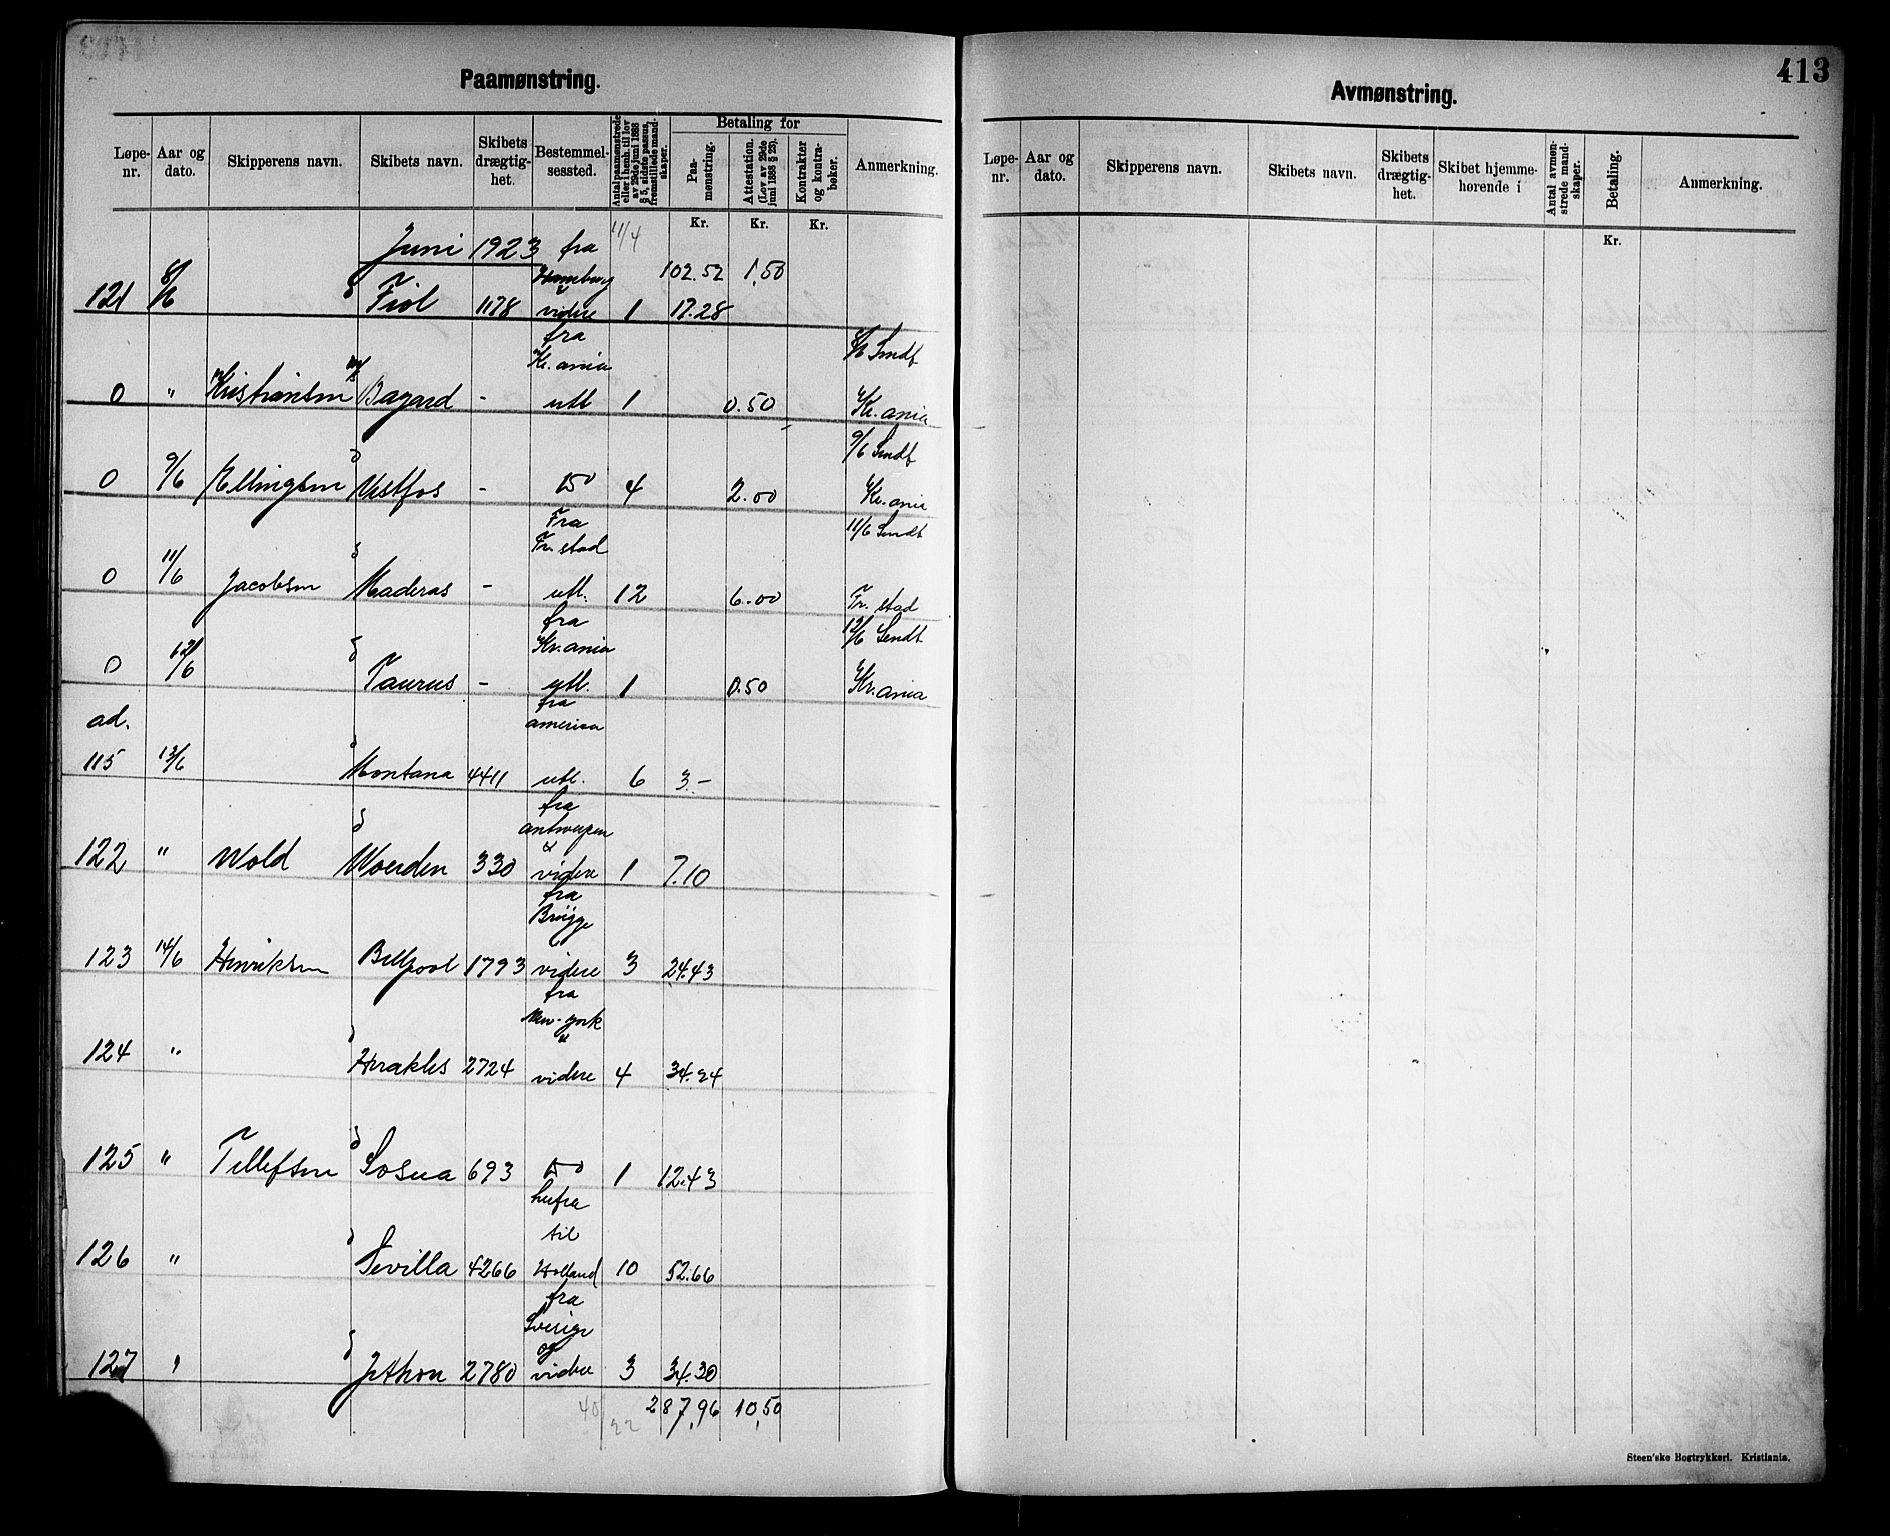 Paamønstring.
Løpe-nr.
Aar og dato.
Skipperens navn.
Skibets navn.
Skibets drægtighet.
Bestemmelsessted.
Antal paamønstrede eller i henh. til lov av 29de juni 1888 § 5, sidste passus, fremstillede mandskaper.
Betaling for
Paamønstring.
Attestation. (Lov av 29de juni 1888 § 23).
Kontrakter og kontrabøker.
Anmerkning.
Kr. Kr. Kr.
Juni 1923 fra 11/4
Hamburg 102.52 1,50
121 8/6 Fiol 1178 videre 1 17.28
fra
Kr.ania 8/6 Sendt
0 " Kristiansen Bayard - utl 1 0.50 Kr.ania
9/6 Sendt
0 9/6 Ellingsen Vestfos - do 4 2.00 Kr.ania
Fra
Fr.stad 11/6 Sendt
0 11/6 Jacobsen Maderas - utl. 12 6.00 Fr.stad
fra
Kr.ania 12/6 Sendt
0 12/6 Taurus - utl. 1 0.50 Kr.ania
ad. fra
america
115 13/6 Montana 4411 utl. 6 3.-
fra
antwerpen
&
122 " Wold Woerden 330 videre 1 7.10
fra
Brügge
123 14/6 Henriksen Bellpool 1793 videre 3 24.43
fra
New-york
&
124 " Herakles 2724 videre 4 34.24
125 " Tellefsen Sosua 693 do 1 12.43
herfra
til
126 " Sevilla 4266 Holland 10 52.66
fra
Sverige
og
127 " Jethon 2780 videre 3 34.30
40/22 287,96 10,50
413
Avmønstring.
Løpe-nr.
Aar og dato.
Skipperens navn.
Skibets navn.
Skibets drægtighet.
Skibet hjemmehørende i
Antal avmønstrede mandskaper.
Betaling.
Anmerkning.
Kr.
Steen'ske Bogtrykkeri. Kristiania.